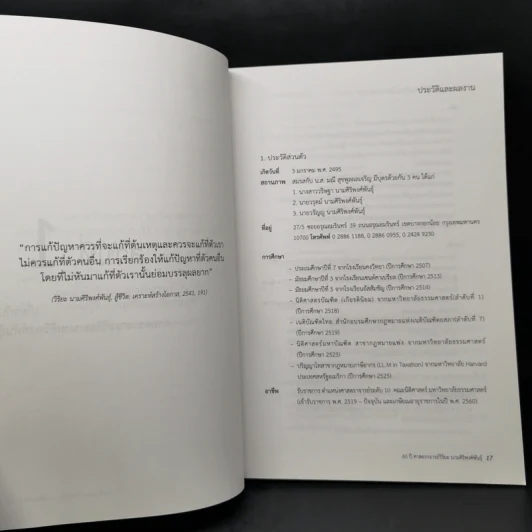 "การแก้ปัญหาควรที่จะแก้ที่ต้นเหตุและควรจะแก้ที่ตัวเรา
ไม่ควรแก้ที่ตัวคนอื่น การเรียกร้องให้แก้ปัญหาที่ตัวคนอื่น
โดยที่ไม่หันมาแก้ที่ตัวเรานั้นย่อมบรรลุผลยาก"
(วิริยะ นามศิริพงศ์พันธุ์, สู้ชีวิต: เคราะห์สร้างโอกาส, 2541, 191)
ประวัติและผลงาน
1. ประวัติส่วนตัว
เกิดวันที่ 3 มกราคม พ.ศ. 2495
สถานภาพ สมรสกับ น.ส. มณี มีบุตรด้วยกัน 3 คน ได้แก่
1. นางสาววริษฐา นามศิริพงศ์พันธุ์
2. นายวรุตม์ นามศิริพงศ์พันธุ์
3. นายวริญญ นามศิริพงศ์พันธุ์
ที่อยู่ 27/5 ซอยอรุณอมรินทร์ 39 ถนนอรุณอมรินทร์ เขตบางกอกน้อย กรุงเทพมหานคร
10700 โทรศัพท์ 0 2886 1188, 0 2886 0955, 0 2424 9230
การศึกษา
- ประถมศึกษาปีที่ 7 จากโรงเรียนคงวิทยา (ปีการศึกษา 2507)
- มัธยมศึกษาปีที่ 3 จากโรงเรียนเซนต์คาเบรียล (ปีการศึกษา 2510)
- มัธยมศึกษาปีที่ 5 จากโรงเรียนอัสสัมชัญ (ปีการศึกษา
- นิติศาสตรบัณฑิต (เกียรตินิยม) จากมหาวิทยาลัยธรรมศาสตร์(ลำดับที่ 1)
(ปีการศึกษา 2518)
- เนติบัณฑิตไทย สำนักอบรมศึกษากฎหมายแห่งเนติบัณฑิตยสภา(ลำดับที่ 7)
(ปีการศึกษา 2519)
- นิติศาสตรมหาบัณฑิต สาขากฎหมายแพ่ง จากมหาวิทยาลัยธรรมศาสตร์
(ปีการศึกษา 2523)
- ปริญญาโทสาขากฎหมายภาษีอากร (LL.M in Taxation) จากมหาวิทยาลัย Harvard
ประเทศสหรัฐอเมริกา (ปีการศึกษา 2525)
อาชีพ รับราชการ ตำแหน่งศาสตราจารย์ระดับ 10 คณะนิติศาสตร์ มหาวิทยาลัยธรรมศาสตร์
(เข้ารับราชการ พ.ศ. 2519 – ปัจจุบัน และเกษียณอายุราชการในปี พ.ศ. 2560)
60 ปี ศาสตราจารย์วิริยะ นามศิริพงศ์พันธุ์ 17